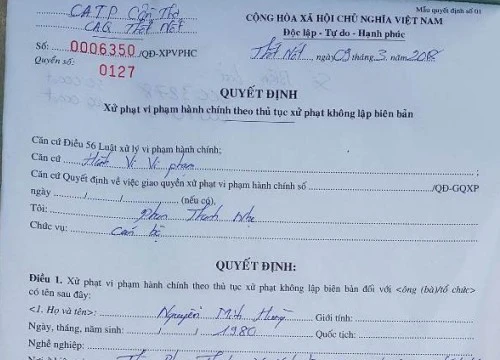 Mẫu quyết định số 01
C.A.T.P Cần Thơ
CAQ Thốt Nốt
CỘNG HÒA XÃ HỘI CHỦ NGHĨA VIỆT NAM
Độc lập - Tự do - Hạnh phúc
Số: 0006350/QĐ-XPVPHC
Thốt Nốt, ngày 09 tháng 3. năm 2018
Quyển số: 0127
QUYẾT ĐỊNH
Xử phạt vi phạm hành chính theo thủ tục xử phạt không lập biên bản
Căn cứ Điều 56 Luật xử lý vi phạm hành chính;
Căn cứ Hành Vi Vi phạm ;
Căn cứ Quyết định về việc giao quyền xử phạt vi phạm hành chính số /QĐ-GQXP
ngày / / (nếu có).
Tôi: Phan Thanh
Chức vụ: cán bộ
QUYẾT ĐỊNH:
Điều 1. Xử phạt vi phạm hành chính theo thủ tục xử phạt không lập biên bản đối với <ông (bà)/tổ chức>
có tên sau đây:
<1. Họ và tên>: Nguyễn Minh Hưng Giới tính:
Ngày, tháng, năm sinh: / / 1980 Quốc tịch:
Nghề nghiệp: